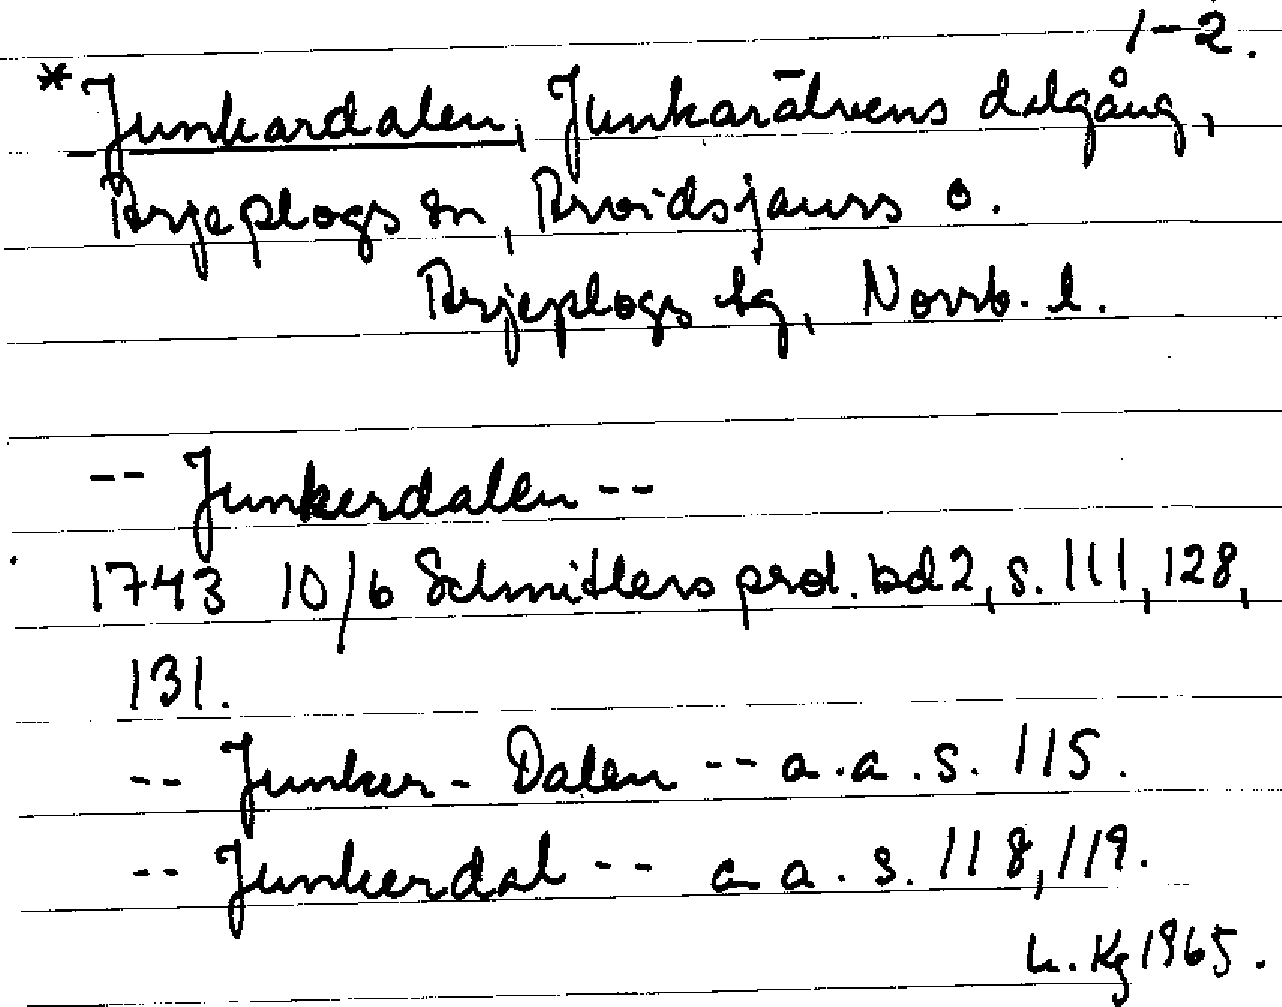 1-2.
* Junkardalen, Junkarälvens dalgång,
Arjeplogs sn, Arvidsjaurs o.
Arjeplogs tg, Norrb. l.
-- Junkerdalen --
1743 10/6 Schnitlers prot. bd 2, s. 111, 128,
131.
-- Junker-Dalen -- a.a. s. 115.
-- Junkerdal -- a a. s. 118, 119.
Kg 1965.